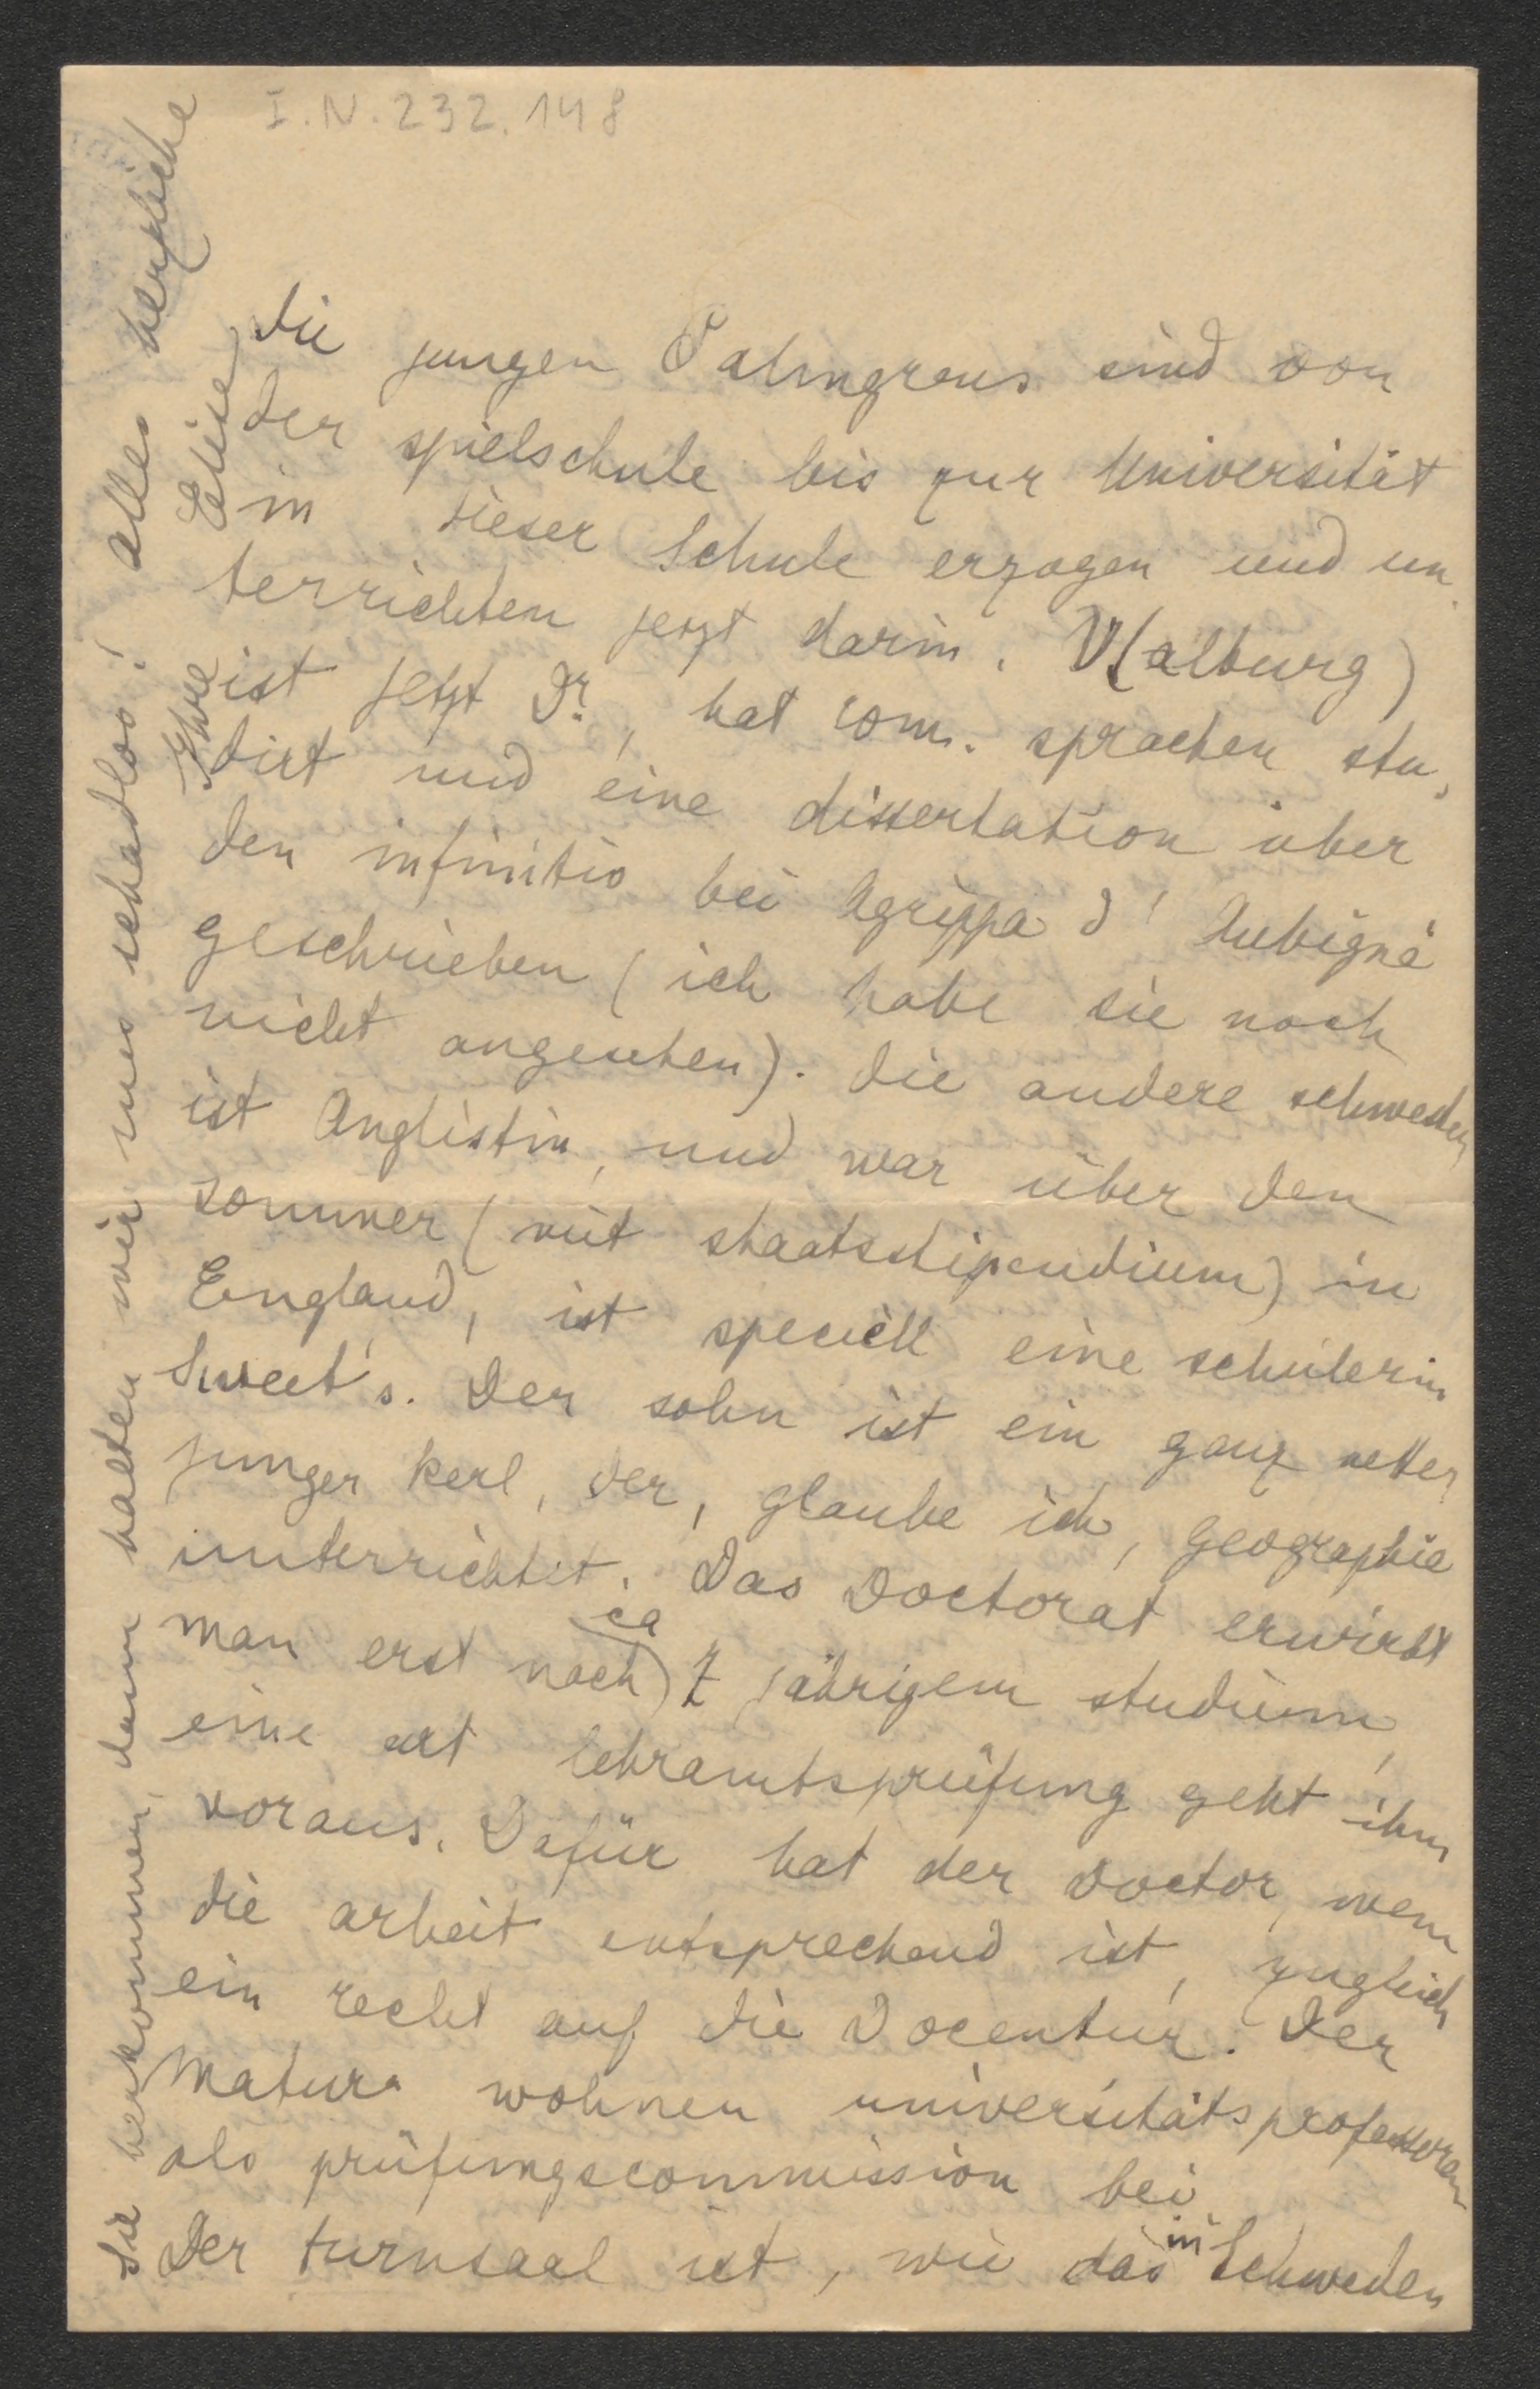 I.N. 232.148
die jungen Palmgrens sind von
der spielschule bis zur Universität
in dieser Schule erzogen und un
terrichten jetzt darin. V(alburg)
ist jetzt Dr., hat rom. sprachen stu,
dirt und eine dissertation über
den infinitiv bei Agrippa d'Aubigné
geschrieben (ich habe sie noch
nicht angesehen). die andere schwester
ist Anglistin, und war über den
sommer (mit staatsstipendium) in
England, ist speciell eine schülerin
Sweet's. Der sohn ist ein ganz netter
junger kerl, der, glaube ich, geographie
unterrichtet. Das Doctorat erwirbt
man erst nach ca 7 jährigem studium,
eine art lehramtsprüfung geht ihm
voraus. Dafür hat der doctor, wenn
die arbeit entsprechend ist, zugleich
ein recht auf die Docentur. Der
Matura wohnen universitätsprofessoren
als prüfungscommission bei.
Der turnsaal ist, wie das in Schweden
Sie herkommen, dann halten wir uns schadlos! alles herzliche
Ihre Elise